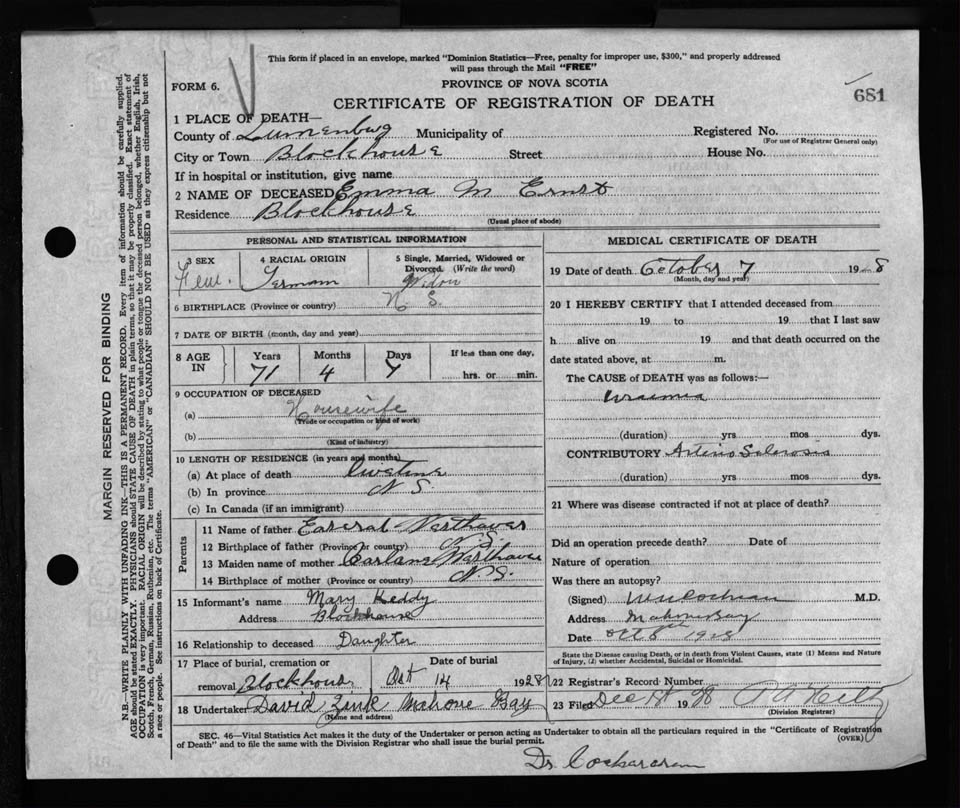 This form if placed in an envelope, marked "Dominion Statistics—Free, penalty for improper use, $300," and properly addressed
will pass through the Mail "FREE"
FORM 6.
PROVINCE OF NOVA SCOTIA
CERTIFICATE OF REGISTRATION OF DEATH
681
1 PLACE OF DEATH—
County of Lunenburg Municipality of Registered No.
(For use of Registrar General only)
City or Town Blockhouse Street House No.
If in hospital or institution, give name
2 NAME OF DECEASED Emma M Ernst
Residence Blockhouse
(Usual place of abode)
PERSONAL AND STATISTICAL INFORMATION
3 SEX 4 RACIAL ORIGIN 5 Single, Married, Widowed or Divorced. (Write the word)
Fem. German Widow
6 BIRTHPLACE (Province or country) N S.
7 DATE OF BIRTH (month, day and year)
8 AGE IN Years Months Days If less than one day,
71 4 7 hrs. or min.
9 OCCUPATION OF DECEASED
(a) Housewife
(Trade or occupation or kind of work)
(b)
(Kind of industry)
10 LENGTH OF RESIDENCE (in years and months)
(a) At place of death
(b) In province N S.
(c) In Canada (if an immigrant)
Parents
11 Name of father
12 Birthplace of father (Province or country) N.S.
13 Maiden name of mother
14 Birthplace of mother (Province or country) N.S.
15 Informant's name Mary Keddy
Address Blockhouse
16 Relationship to deceased Daughter
17 Place of burial, cremation or removal Blockhouse Date of burial Oct 14 1928
18 Undertaker David Zink Mahone Bay
(Name and address)
MEDICAL CERTIFICATE OF DEATH
19 Date of death October 7 1928
(Month, day and year)
20 I HEREBY CERTIFY that I attended deceased from
19 to 19 that I last saw
h alive on 19 and that death occurred on the
date stated above, at m.
The CAUSE of DEATH was as follows:—
Uraemia
(duration) yrs mos dys.
CONTRIBUTORY Arterio Sclerosis
(duration) yrs mos dys.
21 Where was disease contracted if not at place of death?
Did an operation precede death? Date of
Nature of operation
Was there an autopsy?
(Signed) M.D.
Address Mahone Bay
Date Oct 8th 1928
State the Disease causing Death, or in death from Violent Causes, state (1) Means and Nature
of Injury, (2) whether Accidental, Suicidal or Homicidal.
22 Registrar's Record Number
23 Filed Dec 1st 1928
(Division Registrar)
SEC. 46—Vital Statistics Act makes it the duty of the Undertaker or person acting as Undertaker to obtain all the particulars required in the "Certificate of Registration
of Death" and to file the same with the Division Registrar who shall issue the burial permit.
(OVER)
Dr.
MARGIN RESERVED FOR BINDING
N.B.—WRITE PLAINLY WITH UNFADING INK—THIS IS A PERMANENT RECORD. Every item of information should be carefully supplied.
AGE should be stated EXACTLY. PHYSICIANS should STATE CAUSE OF DEATH in plain terms, so that it may be properly classified. Exact statement of
OCCUPATION is very important. RACIAL ORIGIN will be described by stating to what people or tongue the deceased person belonged, whether English, Irish,
Scotch, French, German, Russian, Ruthenian, etc. The terms "AMERICAN" or "CANADIAN" SHOULD NOT BE USED as they express citizenship but not
a race or people. See instructions on back of Certificate.